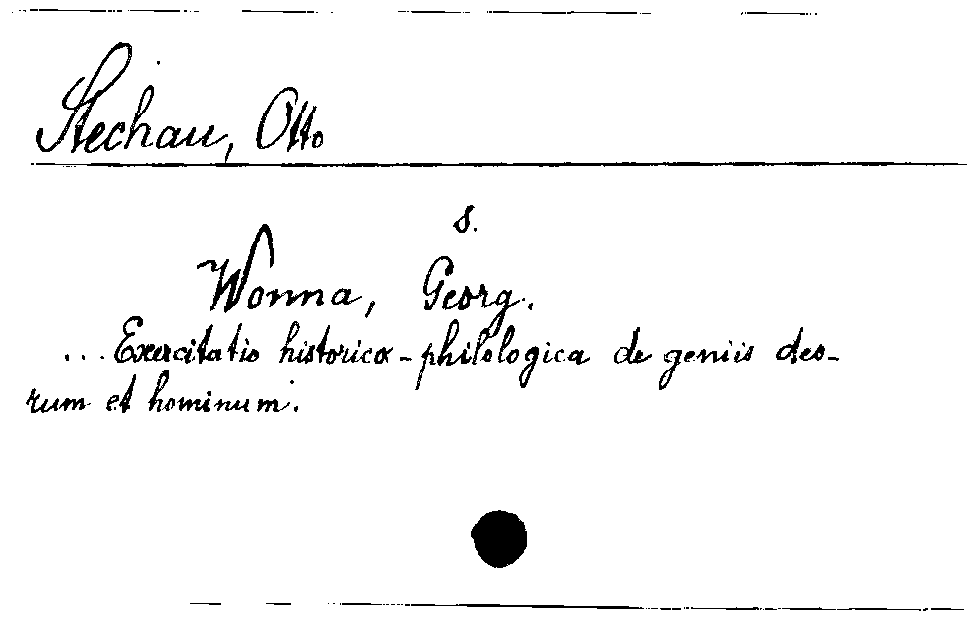 Stechau, Otto
s.
Wonna, Georg.
... Exercitatio historica-philologica de geniis deo-
rum et hominum.